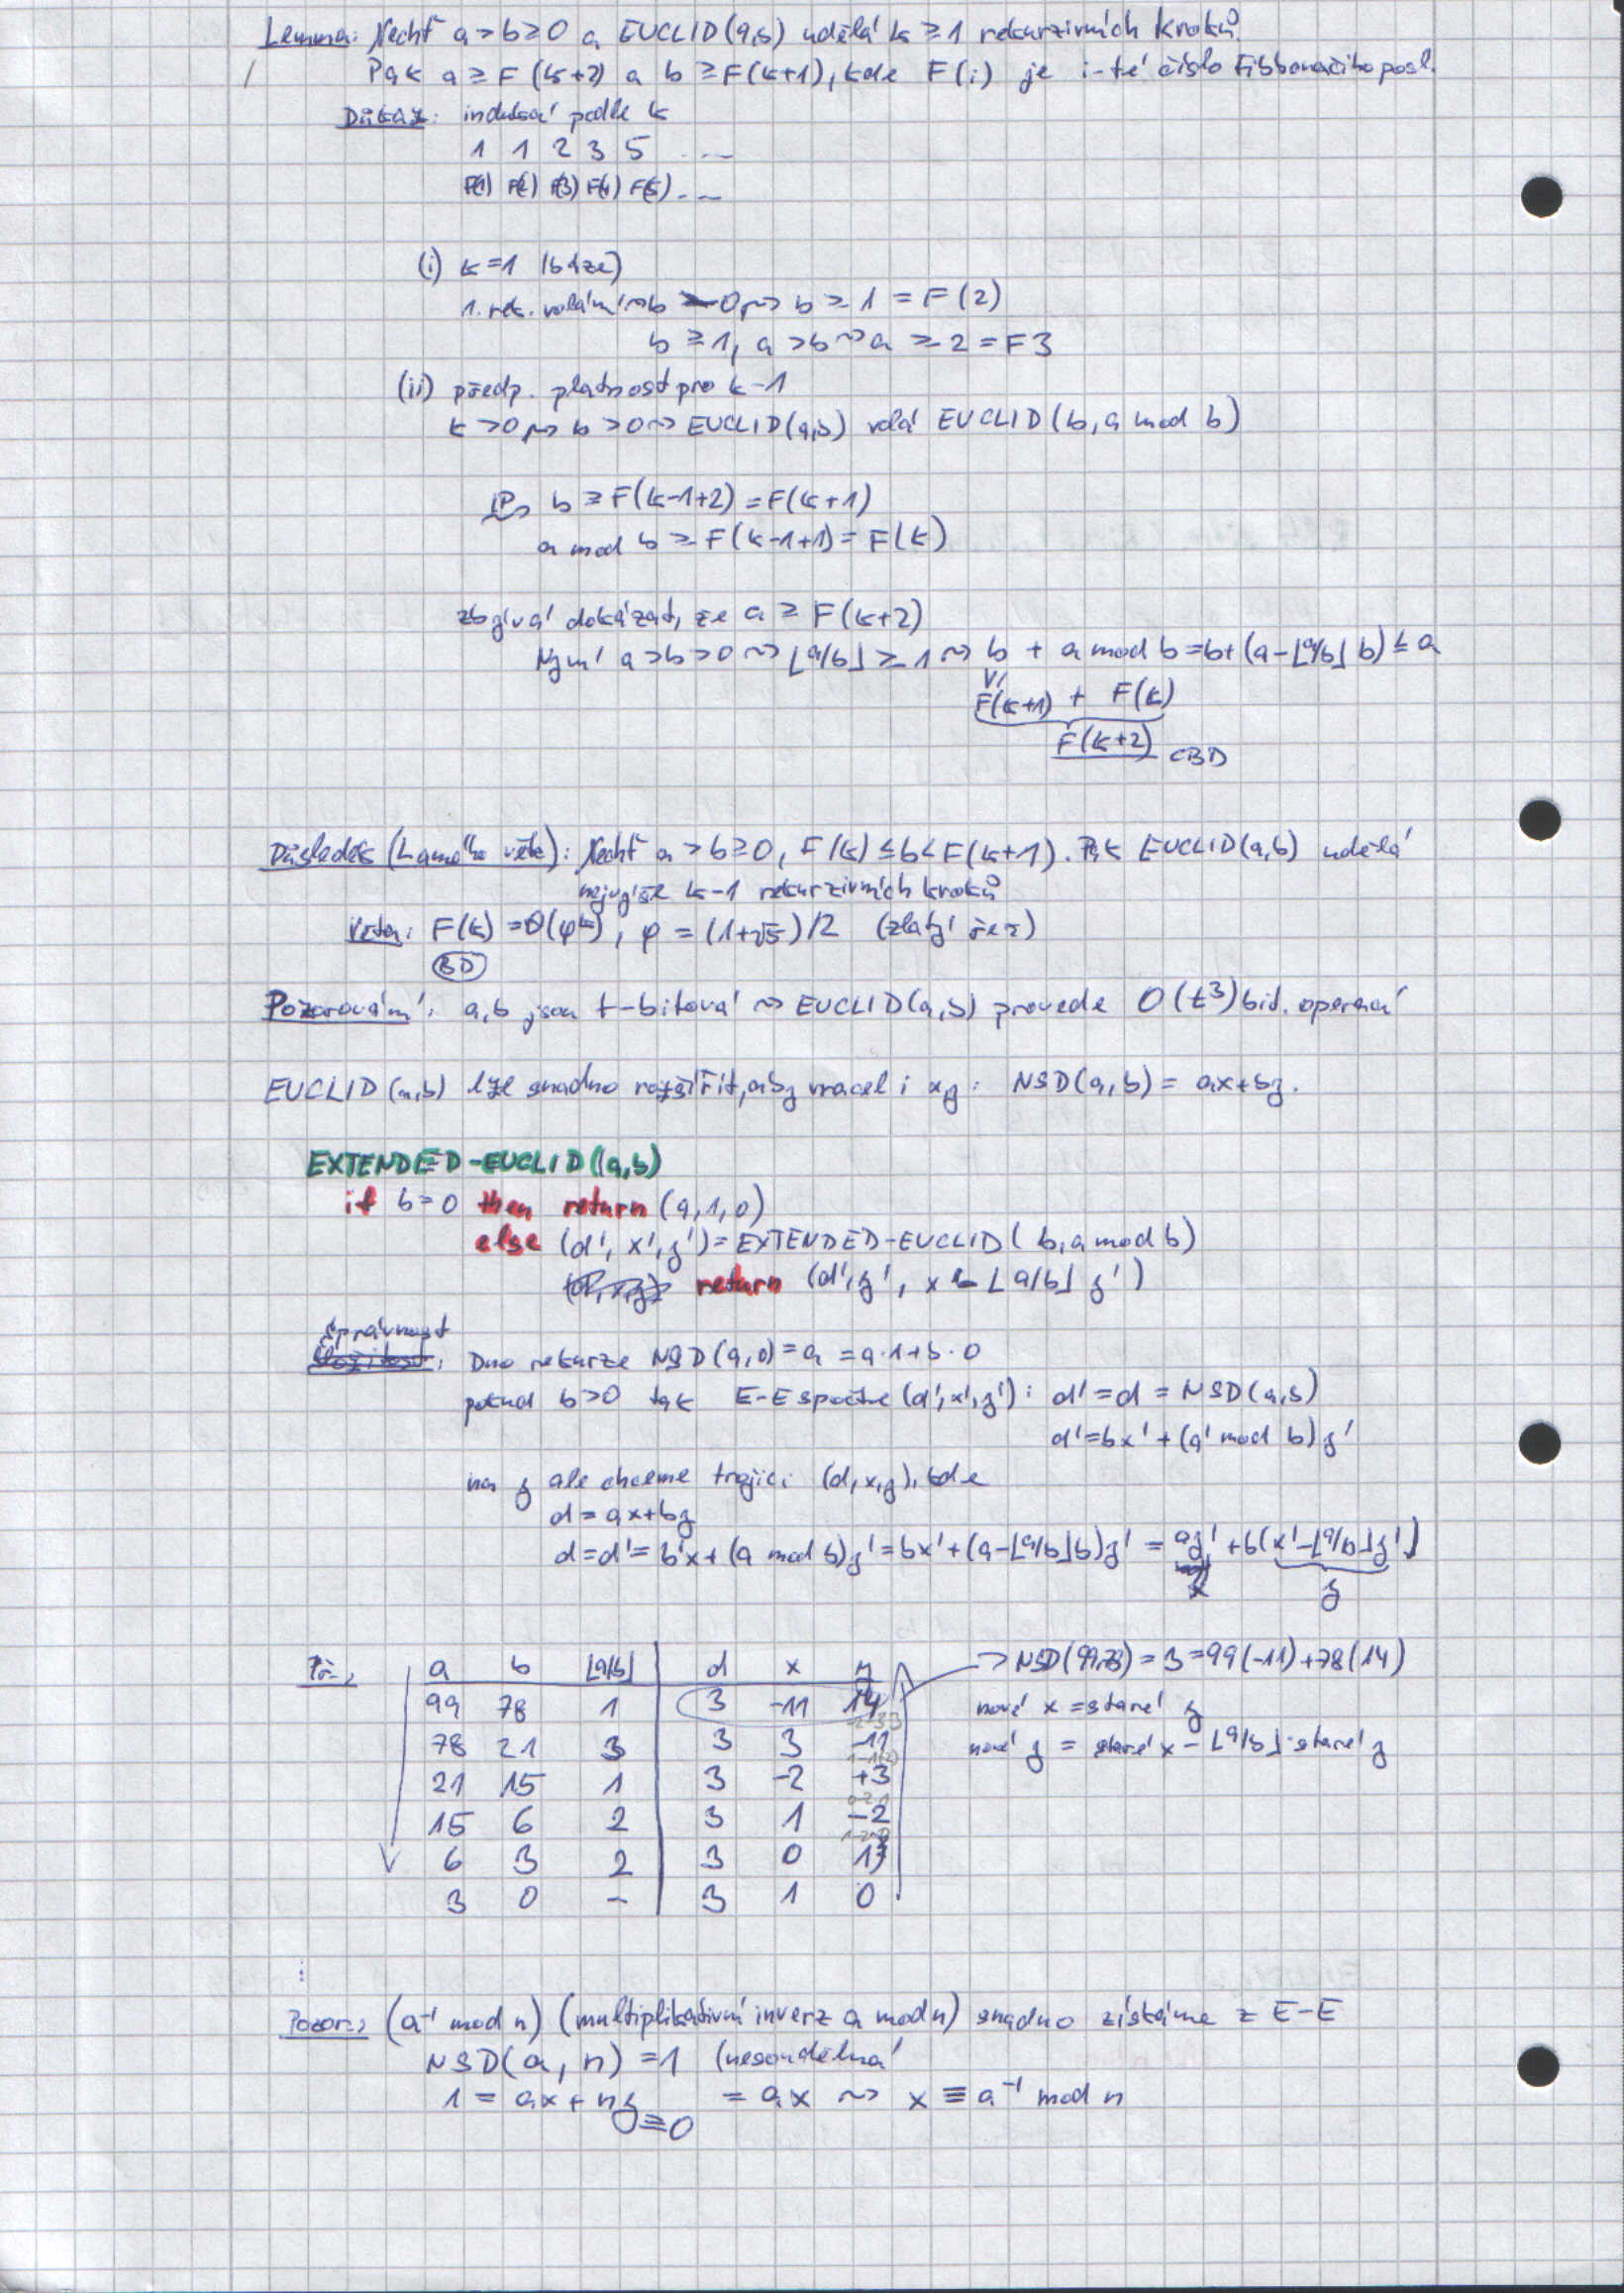 Lemma: Nechť a > b ≥ 0 a EUCLID(a,b) udělá k ≥ 1 rekurzivních kroků.
Pak a ≥ F(k+2) a b ≥ F(k+1), kde F(i) je i-té číslo Fibbonačiho posl.
Důkaz: indukcí podle k
1 1 2 3 5 ...
F(1) F(2) F(3) F(4) F(5) ...
(i) k=1 (báze)
1. rek. volání ⇝ b > 0 ⇝ b ≥ 1 = F(2)
b ≥ 1, a > b ⇝ a ≥ 2 = F3
(ii) předp. platnost pro k-1
k > 0 ⇝ b > 0 ⇝ EUCLID(a,b) volá EUCLID(b, a mod b)
IP⇝ b ≥ F(k-1+2) = F(k+1)
a mod b ≥ F(k-1+1) = F(k)
zbývá dokázat, že a ≥ F(k+2)
Nyní a > b > 0 ⇝ ⌊a/b⌋ ≥ 1 ⇝ b + a mod b = b + (a - ⌊a/b⌋ b) ≤ a
F(k+1) + F(k)
F(k+2) CBD
Důsledek (Lamého věta): Nechť a > b ≥ 0, F(k) ≤ b < F(k+1). Pak EUCLID(a,b) udělá
nejvýše k-1 rekurzivních kroků
Věta: F(k) = Θ(φ^k), φ = (1+√5)/2 (zlatý řez)
BD
Pozorování: a,b jsou t-bitová ⇝ EUCLID(a,b) provede O(t³) bit. operací
EUCLID(a,b) lze snadno rozšířit, aby vracel i x,y: NSD(a,b) = ax+by.
EXTENDED-EUCLID(a,b)
if b=0 then return (a,1,0)
else (d', x', y') = EXTENDED-EUCLID(b, a mod b)
return (d', y', x - ⌊a/b⌋ y')
Správnost: Dno rekurze NSD(a,0) = a = a·1+b·0
pokud b>0 tak E-E spočte (d', x', y'): d' = d = NSD(a,b)
d' = bx' + (a' mod b) y'
my ale chceme trojici (d,x,y), kde
d = ax+by
d = d' = b'x + (a mod b)y' = bx' + (a-⌊a/b⌋b)y' = ay' + b(x'-⌊a/b⌋y')
x y
Př.: a b ⌊a/b⌋ d x y → NSD(99,78) = 3 = 99(-11)+78(14)
99 78 1 3 -11 14 nové x = staré y
78 21 3 3 3 -11 nové y = staré x - ⌊a/b⌋·staré y
21 15 1 3 -2 +3
15 6 2 3 1 -2
6 3 2 3 0 1
3 0 - 3 1 0
Pozor.: (a⁻¹ mod n) (multiplikativní inverz a mod n) snadno získáme z E-E
NSD(a, n) = 1 (nesoudělná
1 = ax + ny = ax ⇝ x ≡ a⁻¹ mod n
≡0